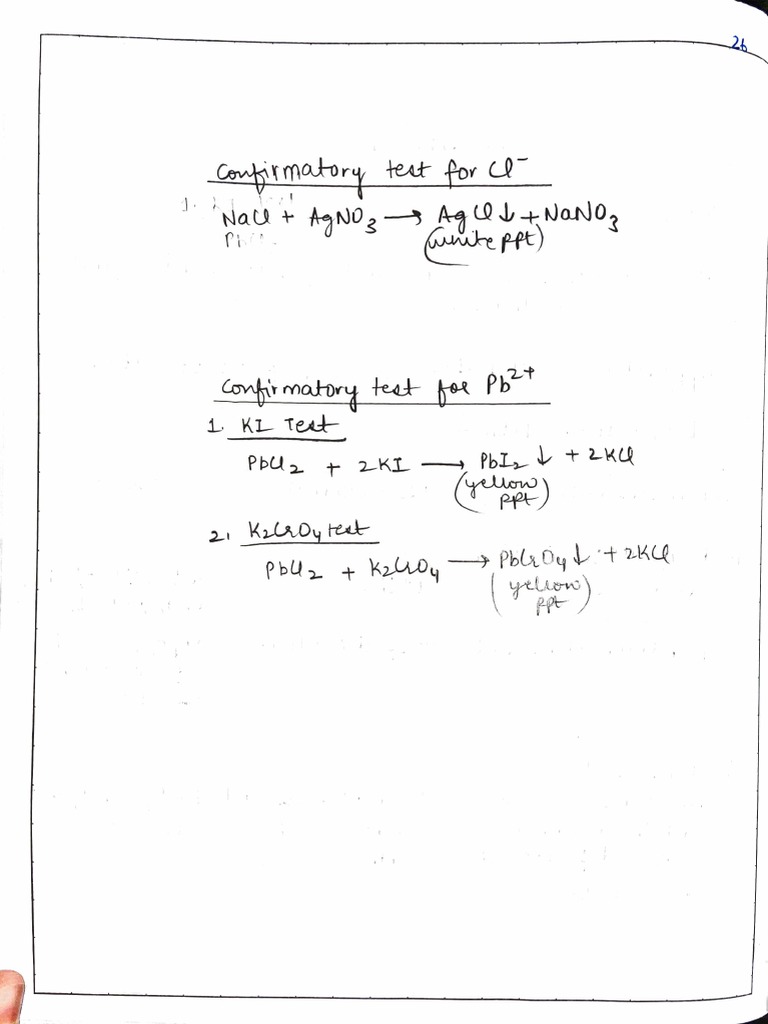 26
Confirmatory test for Cl⁻
1.
NaCl + AgNO₃ → AgCl↓ + NaNO₃
(white ppt)
Confirmatory test for Pb²⁺
1. KI Test
PbCl₂ + 2KI → PbI₂ ↓ + 2KCl
(yellow
ppt)
2. K₂CrO₄ test
PbCl₂ + K₂CrO₄ → PbCrO₄ ↓ + 2KCl
(yellow
ppt)